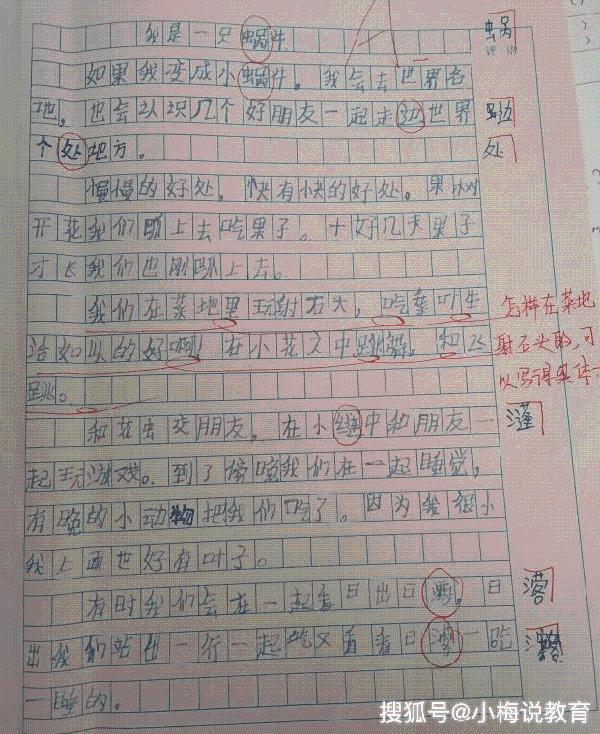 我是一只蜗牛
蜗
如果我变成小蜗牛。我会去世界各
地，也会认识几个好朋友一起走边世界
边
个处地方。
处
慢慢的好处，快有快的好处。果树
开花我们爬上去吃果子。十好几天果子
才长我们也刚爬上去。
我们在菜地里玩射石头，吃菜叶牛
怎样在菜地
治如以的好啊！在小花文中跳舞，和飞
射石头的，可
跳。
以写得具体
和花虫交朋友。在小缝中和朋友一
起玩游戏。到了傍晚我们在一起睡觉，
有晚的小动物把我们吃了。因为我很小
我上面世好有叶子。
有时我们会在一起看日出日落，日
出我们站出一行一起吃又看着日落一吃
一睡的。
搜狐号@小梅说教育